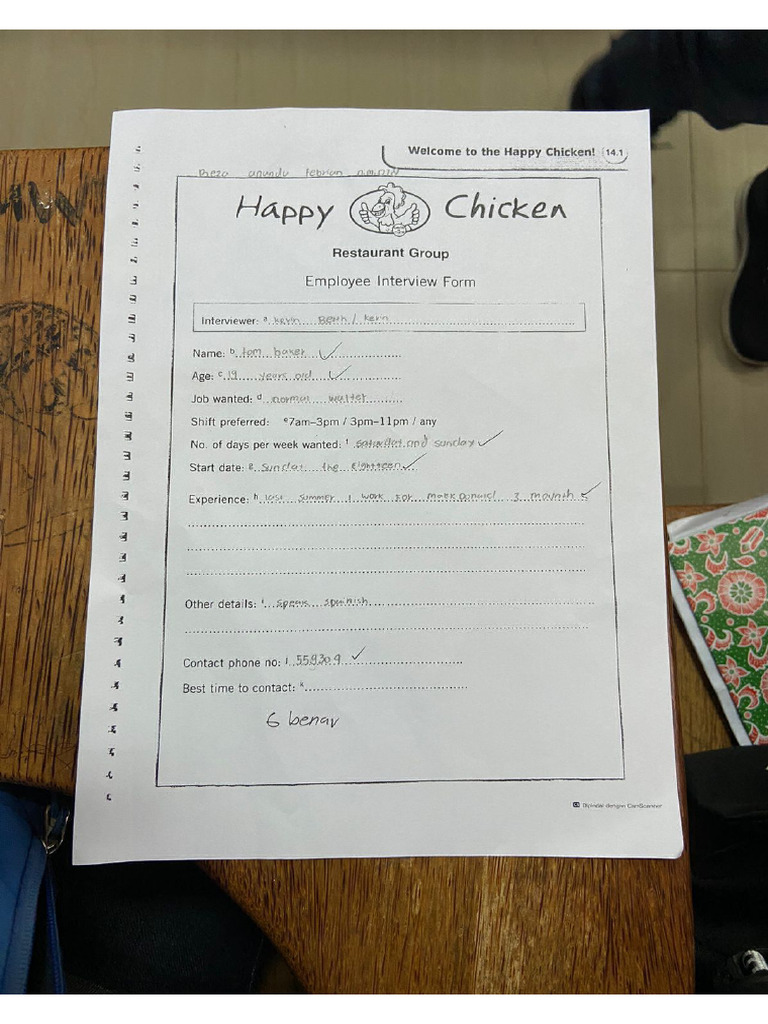 Welcome to the Happy Chicken! 14.1
Febrian
Happy Chicken
Restaurant Group
Employee Interview Form
Interviewer: a. kevin Beth / kevin
Name: b. tom baker
Age: c. 19 years old
Job wanted: d. normal waiter
Shift preferred: e 7am–3pm / 3pm–11pm / any
No. of days per week wanted: f. saturday and sunday
Start date: g. Sunday the eighteen
Experience: h. last summer I work for Monday 3
Other details: i. speak spanish
Contact phone no: j. 559309
Best time to contact: k.
6 benar
CS Dipindai dengan CamScanner